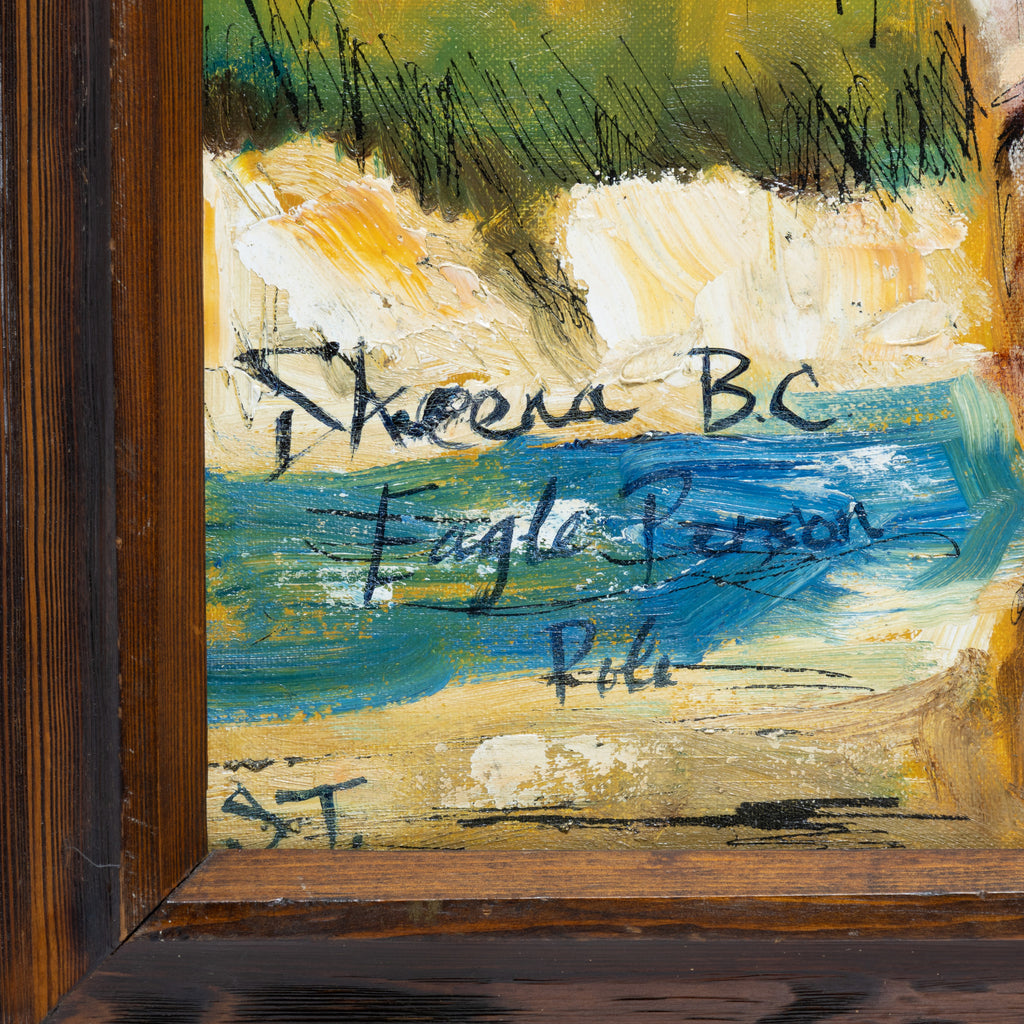 Skeena B.C
Eagle Person
Role
S.T.